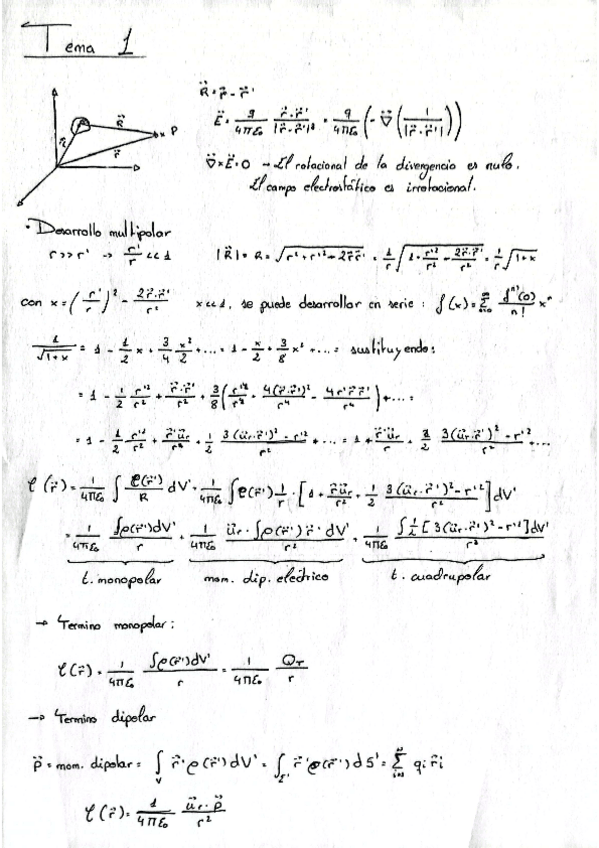 Tema 1
R⃗ = r⃗ - r⃗'
E⃗ = q/4πε₀ (r⃗ - r⃗')/|r⃗ - r⃗'|³ = q/4πε₀ (-∇⃗(1/|r⃗ - r⃗'|))
R⃗ P
r⃗' r⃗
∇⃗×E⃗=0 → El rotacional de la divergencia es nulo.
El campo electrostático es irrotacional.
• Desarrollo multipolar
r>>r' → r'/r <<1 |R⃗| = R = √(r²+r'²+2r⃗r⃗') = 1/r √(1+r'²/r² - 2r⃗·r⃗'/r²) = 1/r √(1+x)
con x=(r'/r)² - 2r⃗·r⃗'/r² x<<1, se puede desarrollar en serie: f(x)=Σ fⁿ⁾(0)/n! xⁿ
1/√(1+x) = 1 - 1/2 x + 3/4 x²/2 + ... = 1 - x/2 + 3/8 x² + ... = sustituyendo:
= 1 - 1/2 r'²/r² + r⃗·r⃗'/r² + 3/8 (r'⁴/r⁴ + 4(r⃗·r⃗')²/r⁴ - 4r'r⃗r⃗'/r⁴) + ... =
= 1 - 1/2 r'²/r² + r⃗'u⃗r/r + 1/2 3(u⃗r·r⃗')² - r'²/r² + ... = 1 + r⃗'u⃗r/r + 1/2 3(u⃗r·r⃗')² - r'²/r² + ...
φ(r⃗) = 1/4πε₀ ∫ ρ(r⃗')/R dV' = 1/4πε₀ ∫ρ(r⃗') 1/r · [1 + r⃗'u⃗r/r + 1/2 3(u⃗r·r⃗')² - r'²/r²] dV'
= 1/4πε₀ ∫ρ(r⃗')dV'/r + 1/4πε₀ u⃗r·∫ρ(r⃗')r⃗'dV'/r² + 1/4πε₀ ∫1/2[3(u⃗r·r⃗')² - r'²]dV'/r³
t. monopolar mom. dip. eléctrico t. cuadrupolar
→ Termino monopolar:
φ(r⃗) = 1/4πε₀ ∫ρ(r⃗')dV'/r = 1/4πε₀ Q_T/r
→ Termino dipolar
p⃗ = mom. dipolar = ∫_V r⃗'ρ(r⃗')dV' = ∫_Σ' r⃗'ρ(r⃗')dS' = Σ qᵢ r⃗ᵢ
φ(r⃗) = 1/4πε₀ u⃗r·p⃗/r²